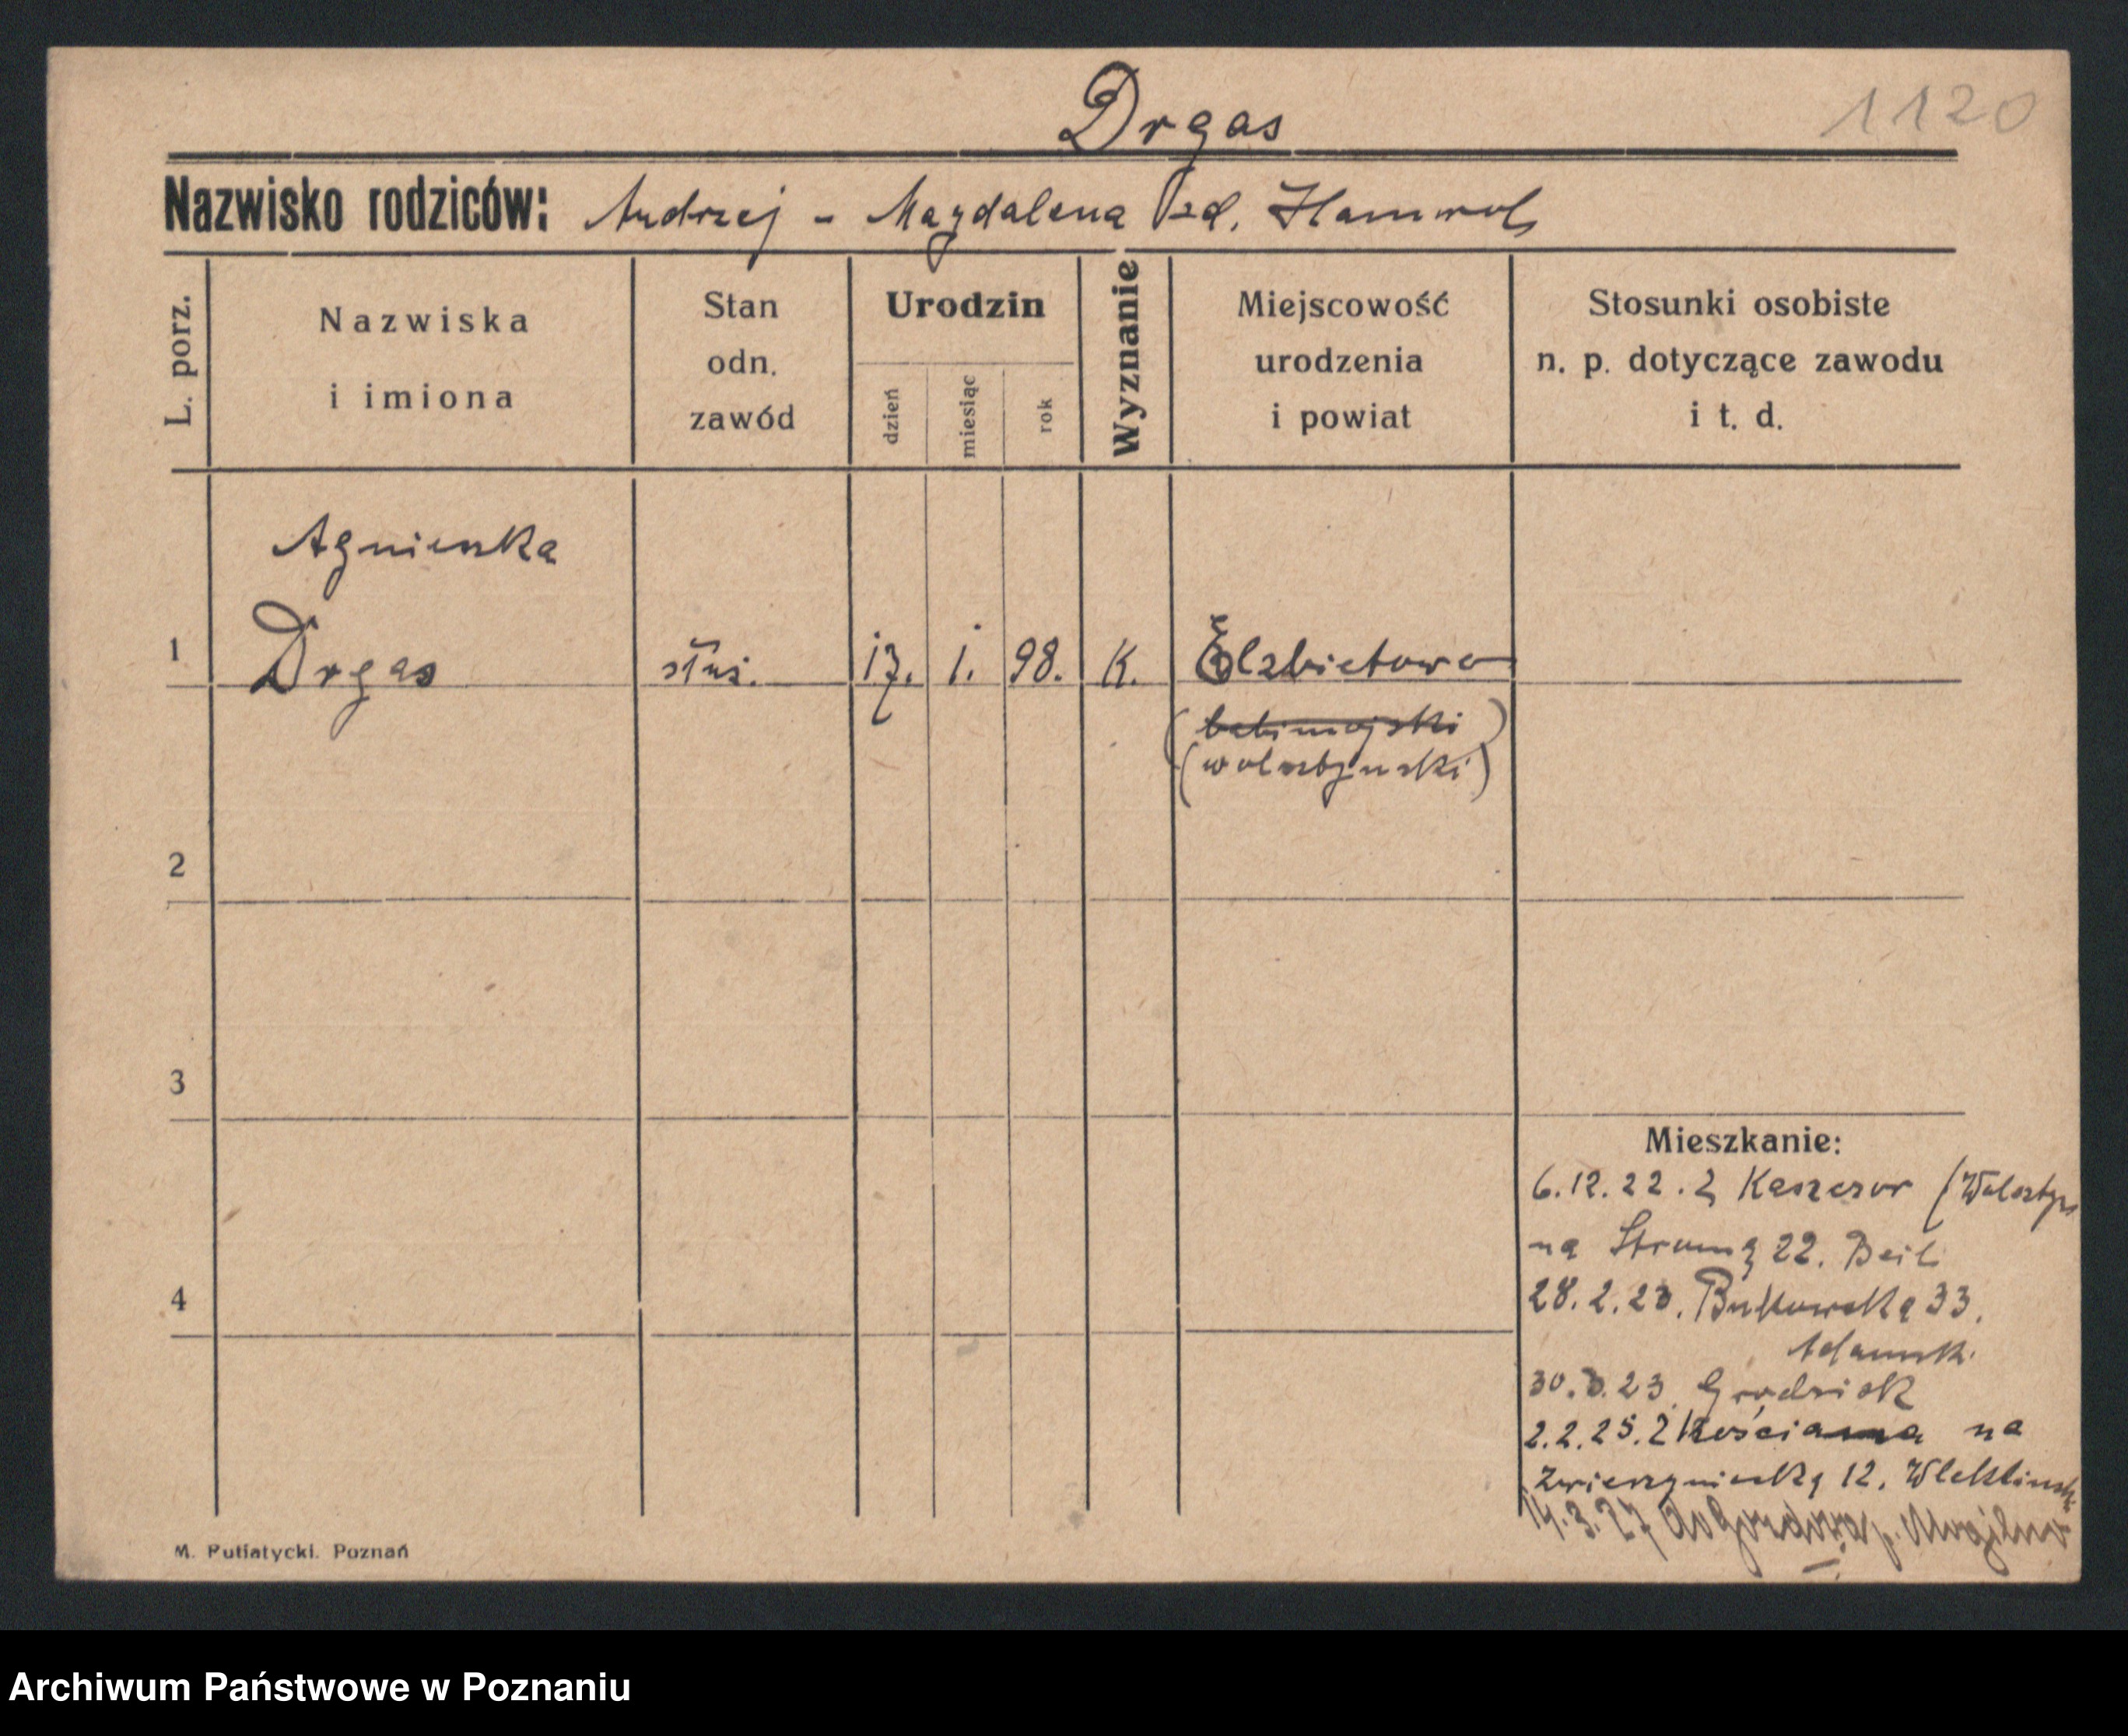 Drgas
1120
Nazwisko rodziców: Andrzej - Magdalena
L. porz.
Nazwiska
i imiona
Stan
odn.
zawód
Urodzin
dzień
miesiąc
rok
Wyznanie
Miejscowość
urodzenia
i powiat
Stosunki osobiste
n. p. dotyczące zawodu
i t. d.
Agnieszka
1 Drgas służ. 17. 1. 98. K. Elzbietowo
(babimojski)
(wolsztyński)
2
3
4
Mieszkanie:
6.12.22. z Kaszczor (Wolsztyn
na Stromą 22. Beil
28.2.23. Bukowska 33.
30.3.23. Grodzisk
2.2.25. z Kościana na
Zwierzyniecką 12.
14.3.27 do p. Mogilno
M. Putiatycki. Poznań
Archiwum Państwowe w Poznaniu